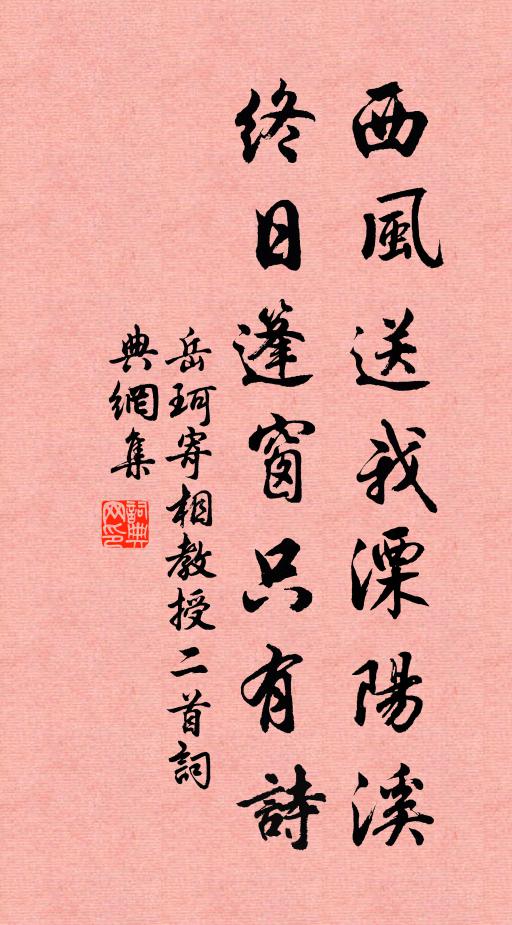 西風送我溧陽溪
終日篷窗只有詩
岳珂寄相教授二首詞
典網集
詞典
网印